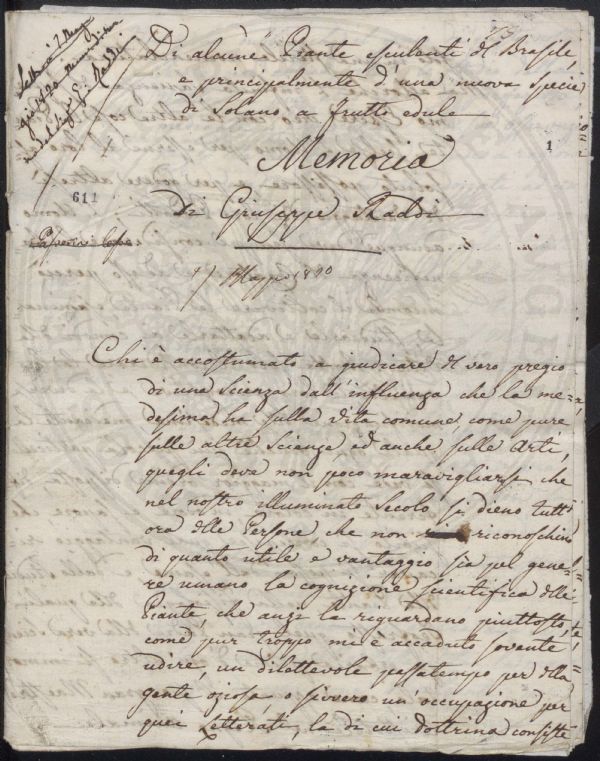 Letta il 7 Mag
Di alcune Piante esculenti del Brasile,
e principalmente d'una nuova specie
di Solano a frutto edule
Memoria
1
611
Di Giuseppe Raddi
Chi è accostumato a giudicare del vero pregio
di una Scienza dall'influenza che la me=
desima ha sulla vita comune, come pure
sulle altre Scienze ed anche sulle Arti,
quegli deve non poco maravigliarsi che
nel nostro illuminato Secolo si dieno tutt'
ora delle Persone che non riconoschino
di quanto utile e vantaggio sia pel gene=
re umano la cognizione scientifica delle
Piante, che anzi la riguardano piuttosto,
come pur troppo mi è accaduto sovente
udire, un dilettevole passatempo per della
gente oziosa, o sivvero un'occupazione per
quei Letterati, la di cui dottrina consiste